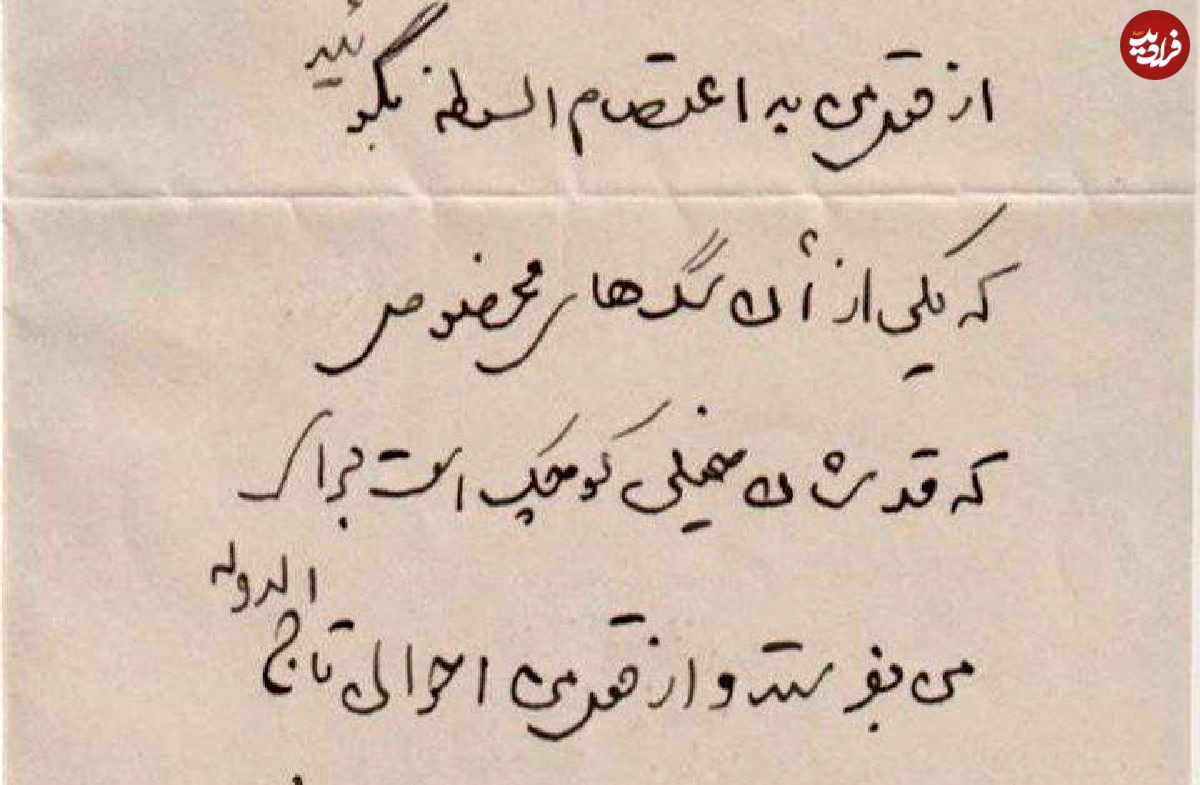 فرادید
از قول من به اعتصام السلطنه بگوئید
که یکی از آن سگ های مخصوص
که قدشان خیلی کوچک است برای
من بفرستد و از قول من احوال تاج الدوله